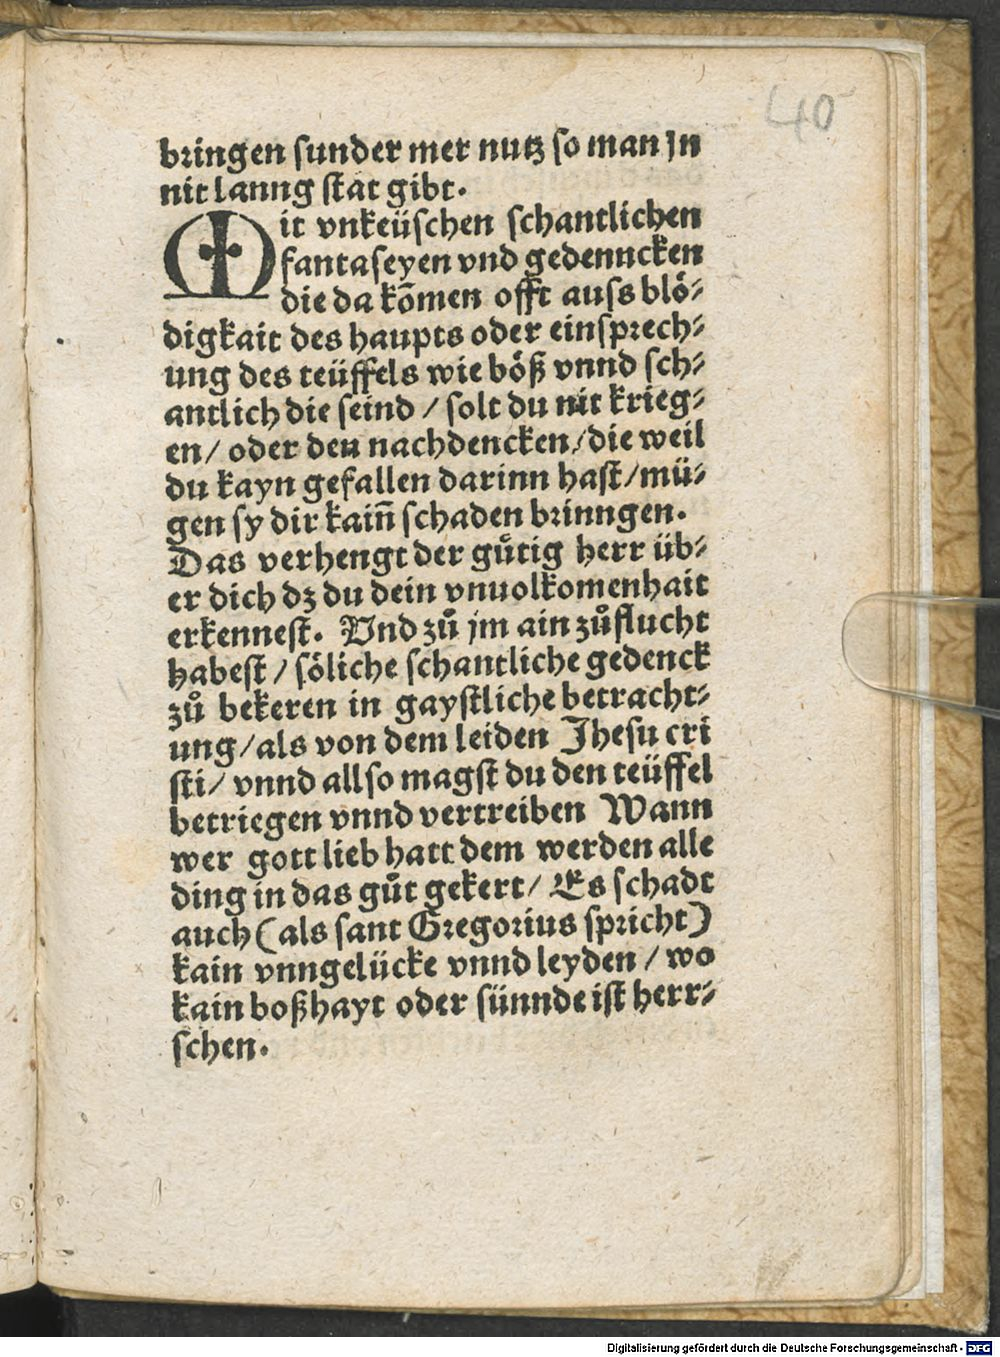 40
bringen sunder mer nutz so man jn
nit lanng stat gibt.
Mit vnkeüschen schantlichen
fantaseyen vnd gedenncken
die da kōmen offt auss blö⸗
digkait des haupts oder einsprech⸗
ung des teüffels wie böß vnnd sch⸗
antlich die seind / solt du nit krieg⸗
en / oder den nachdencken / die weil
du kayn gefallen darinn hast / mü⸗
gen sy dir kain̄ schaden brinngen.
Das verhengt der gůtig herr üb⸗
er dich dz du dein vnuolkomenhait
erkennest. Vnd zů jm ain zůflucht
habest / söliche schantliche gedenck
zů bekeren in gaystliche betracht⸗
ung / als von dem leiden Jhesu cri
sti / vnnd allso magst du den teüffel
betriegen vnnd vertreiben Wann
wer gott lieb hatt dem werden alle
ding in das gůt gekert / Es schadt
auch (als sant Gregorius spricht)
kain vnngelücke vnnd leyden / wo
kain boßhayt oder sünnde ist herr⸗
schen.
Digitalisierung gefördert durch die Deutsche Forschungsgemeinschaft - DFG